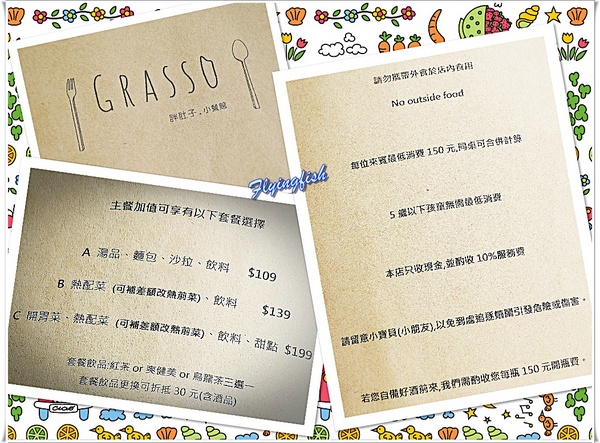 GRASSO
胖肚子.小餐館
Flyingfish
主餐加值可享有以下套餐選擇
A 湯品、麵包、沙拉、飲料 $109
B 熱配菜 (可補差額改熱前菜)、飲料 $139
C 開胃菜、熱配菜 (可補差額改熱前菜)、飲料、甜點 $199
套餐飲品:紅茶 or 爽健美 or 烏龍茶三選一
套餐飲品更換可折抵 30 元(含酒品)
請勿攜帶外食於店內食用
No outside food
每位來賓最低消費 150 元,同桌可合併計算
5 歲以下孩童無需最低消費
本店只收現金,並酌收 10%服務費
請留意小寶貝(小朋友),以免到處追逐嬉鬧引發危險或傷害。
若您自備好酒前來,我們需酌收您每瓶 150 元開瓶費。